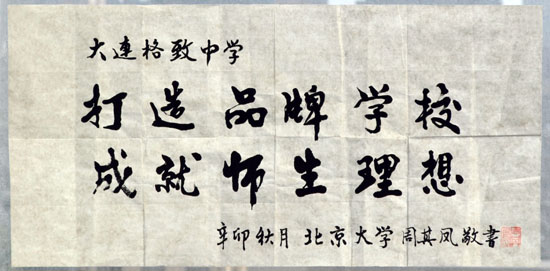 大连格致中学
打造品牌学校
成就师生理想
辛卯秋月 北京大学 周其凤敬书